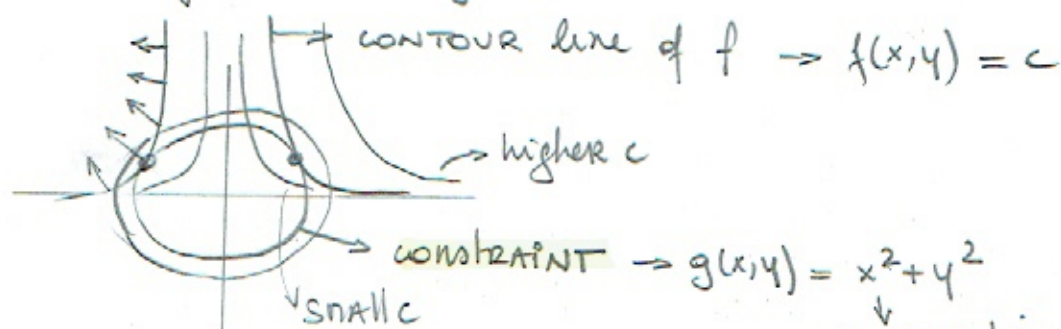 CONTOUR line of f → f(x,y) = c
higher c
constraint → g(x,y) = x² + y²
small c